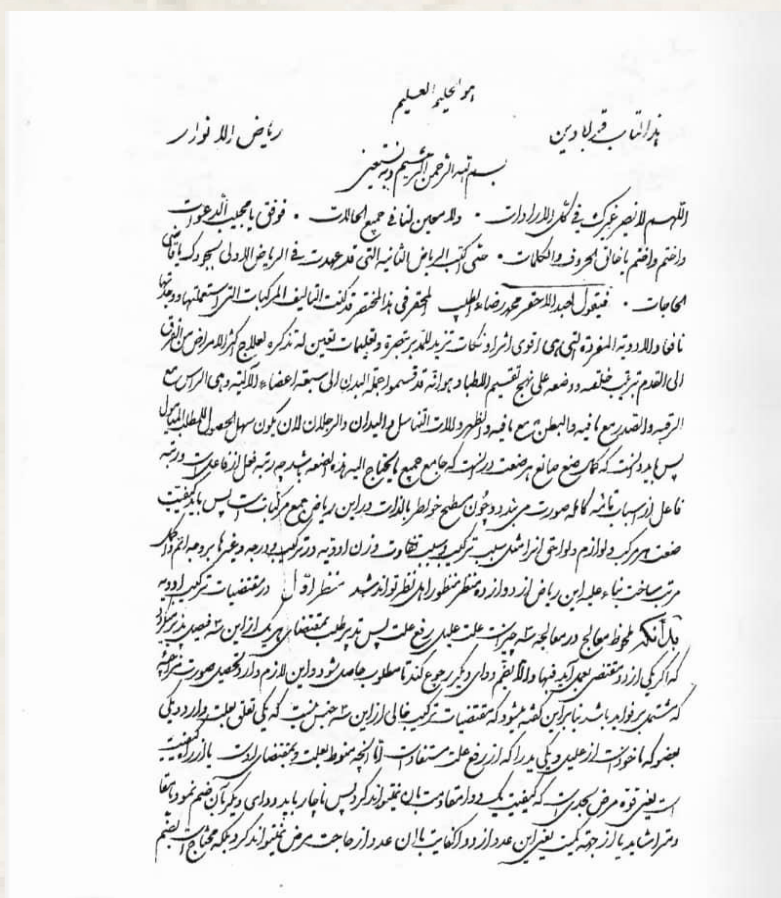 هو الحلیم العلیم
هذا کتاب قرابادین ریاض الانواری
بسم الله الرحمن الرحیم و به نستعین
اللهم لا نصیر غیرک فی کل الارادات ۰ ولا معین لنا فی جمیع الحالات ۰ فوفق یا مجیب الدعوات
واختم یا خالق الحروف والکلمات ۰ حتی اکتب الریاض الثانیه التی قد عهدت فی الریاض الاولی بجودک یا قاضی
الحاجات ۰ فیقول العبد الاحقر محمد رضاء الطبیب المحقر فی هذا المختصر قد کنت التالیف المرکبات التی استعملتها ووجدتها
نافعا والادویه المفرده التی هی اقوی اثرا و نکات تزید للمدبر تبصرة و تعلیمات تعین له تذکره لعلاج اکثر الامراض من الفرق
الی القدم ترتیب ووضعه علی نهج تقسیم الاطباء وهو انه قد قسموا جملة البدن الی سبعة اعضاء الآلیه وهی الراس مع
الرقبه والصدر مع ما فیه والبطن مع ما فیه والظهر والات التناسل والیدان والرجلان لان یکون سهل الحصول للطالب
پس باید دانست که کمال صنع صانع هر صنعت در آنست که جامع جمیع ما یحتاج الیه هذه الصنعه باشد چه رتبه فعل از فاعل است و رتبه
فاعل از اسباب کامله صورت می بندد و چون مطمح خواطر بالذات در این ریاض جمع مرکبات است پس باید کیفیت
صنعت هر مرکب و لوازم و لواحق آنرا مثل سبب ترکیب و سبب تفاوت وزن ادویه در ترکیب و درجه و غیرها بر وجه اتم و اکمل
مرتب ساخت بناء علیه این ریاض از دوازده منظر منظور اهل نظر تواند شد منظر اول در مقتضیات ترکیب ادویه
بدانکه ملحوظ معالج در معالجه سه چیز است علت علیل رفع علت پس تدبیر طلب بمقتضای هر یک از این سه فیصل پذیر
که اگر یکی از دو مقتضی بعمل آید فبها والا بضم دوای دیگر رجوع کند تا مطلوب حاصل شود و این لازم دارد تحصیل صورت
که مشتمل بر فواید باشد بنابر این گفته میشود که مقتضیات ترکیب خالی از این سه جنس نیست که یکی تعلق بعلت دارد و یکی
بعضو که ماخوذ است از علیل و یکی را که از رفع علت مستفاد است اما آنچه منوط بعلت و بمقتضای اوست یا از راه کیفیت
است یعنی قوه مرض بحدی است که کیفیت یک دوا مقاومت با آن نمیتواند کرد پس ناچار باید دوای دیگر بآن ضم نمود تا
و یا از جهة کمیت یعنی این عدد از دوا کفایت با آن عدد از حاجت مرض نمیتواند کرد بلکه محتاج است بضم